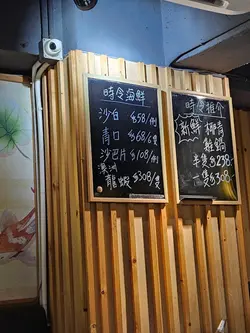 時令海鮮
沙白 $58/例
青口 $68/6隻
沙巴片 $108/例
澳洲
龍蝦 $308/隻
時令推介
新鮮 椰青
雞鍋
半隻 $238
一隻 $308